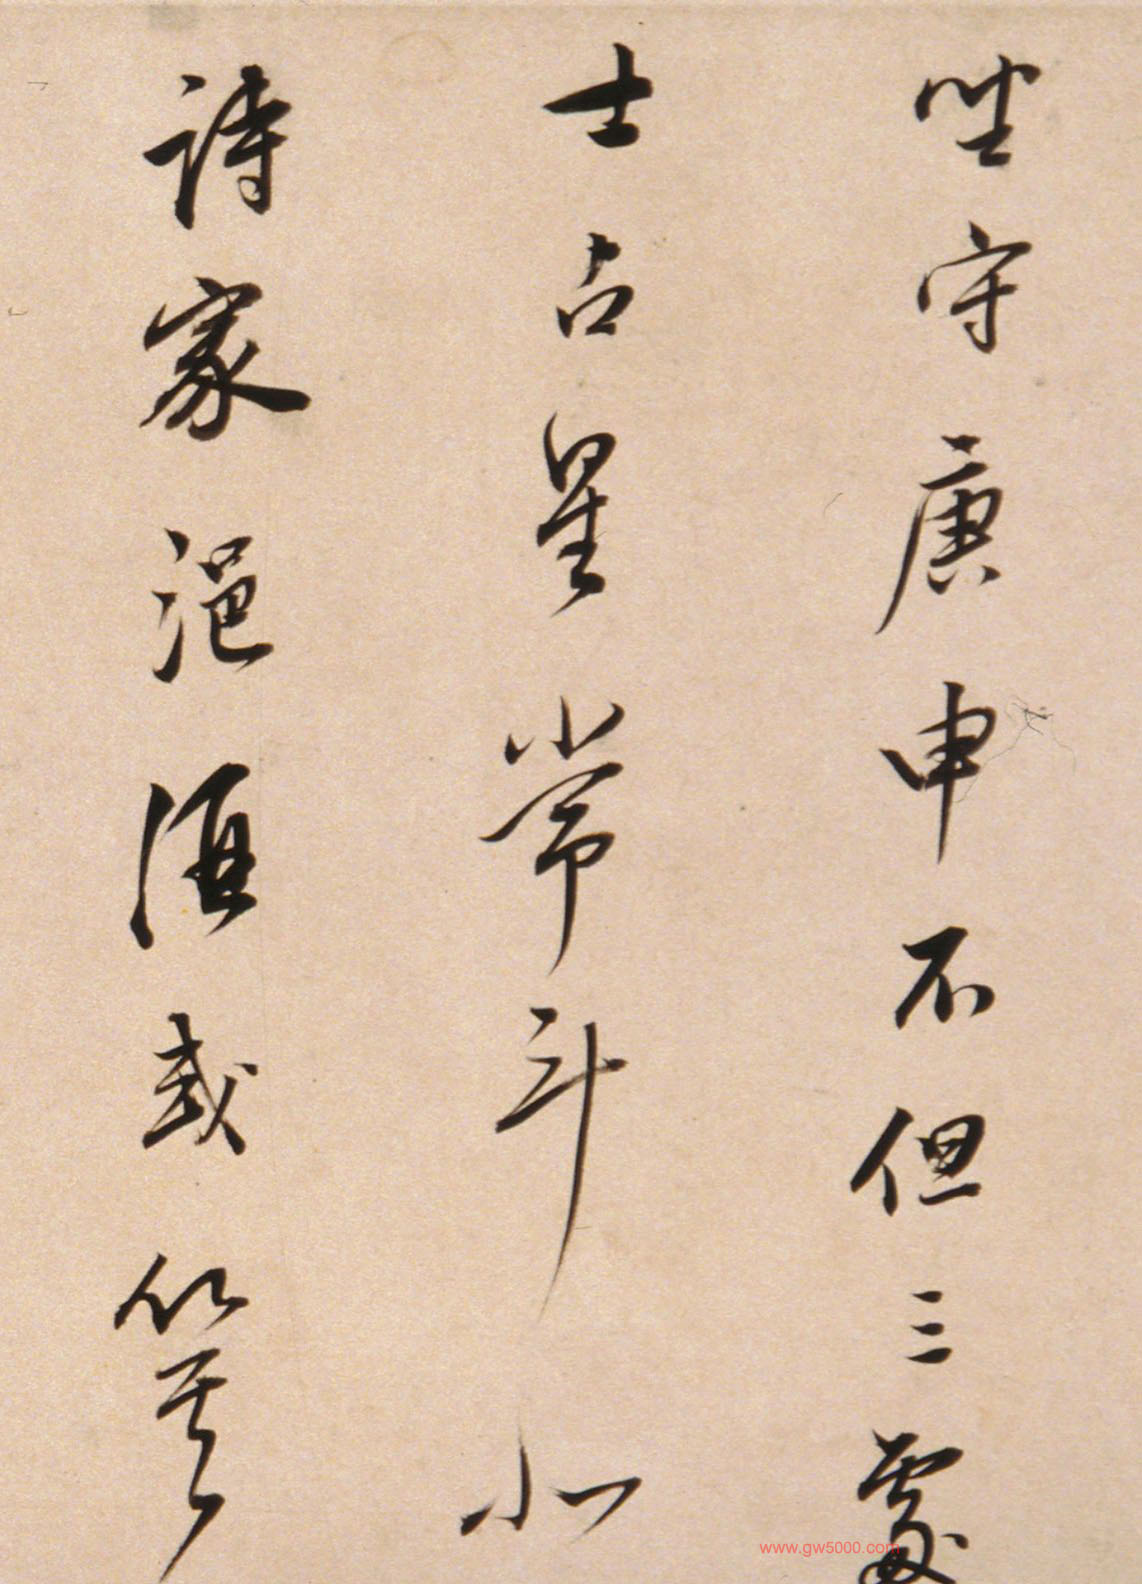 坐守庚申不但三處
士占星常斗北
詩家浥酒或箕
www.gw5000.com